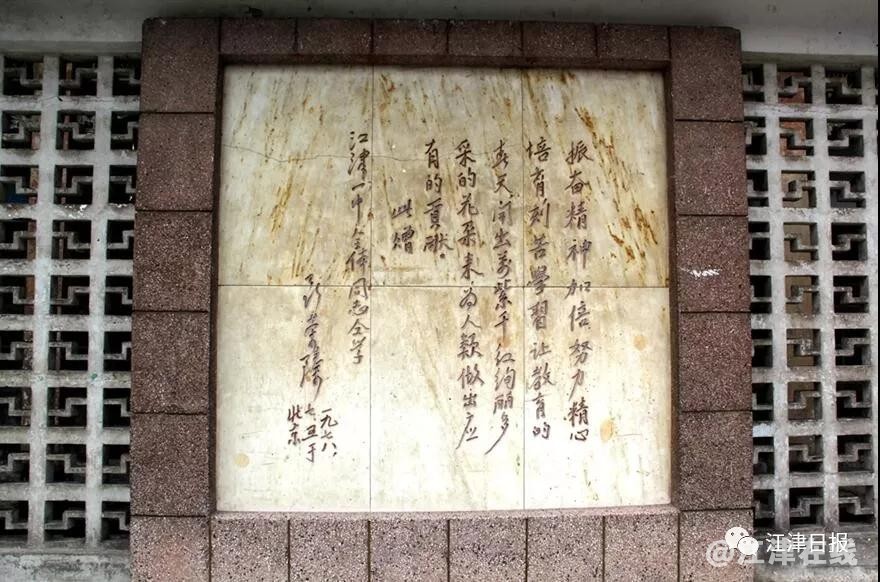 振奋精神加倍努力精心
培育刻苦學習让教育的
春天開出萬紫千红绚丽多
采的花朵来为人類做出应
有的貢献。
此赠
江津一中全体同志仝学
聂荣臻
一九七八、
七、五于
北京
江津日报
@江津在线